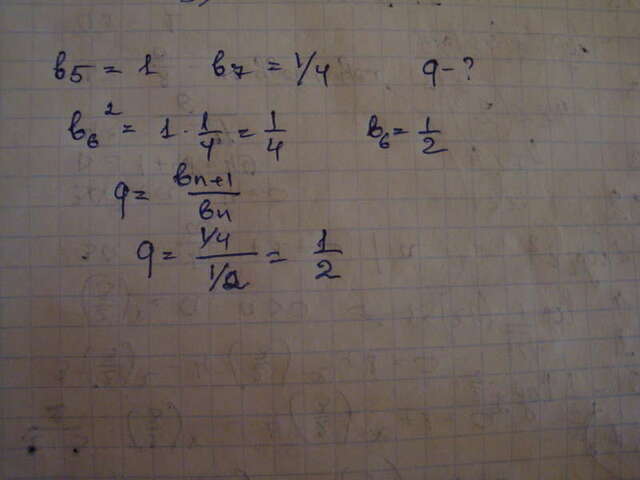 в5 = 1 в7 = 1/4 q - ?
в₆² = 1 · 1/4 = 1/4 в₆ = 1/2
q = вn+1/вn
q = 1/4 / 1/2 = 1/2